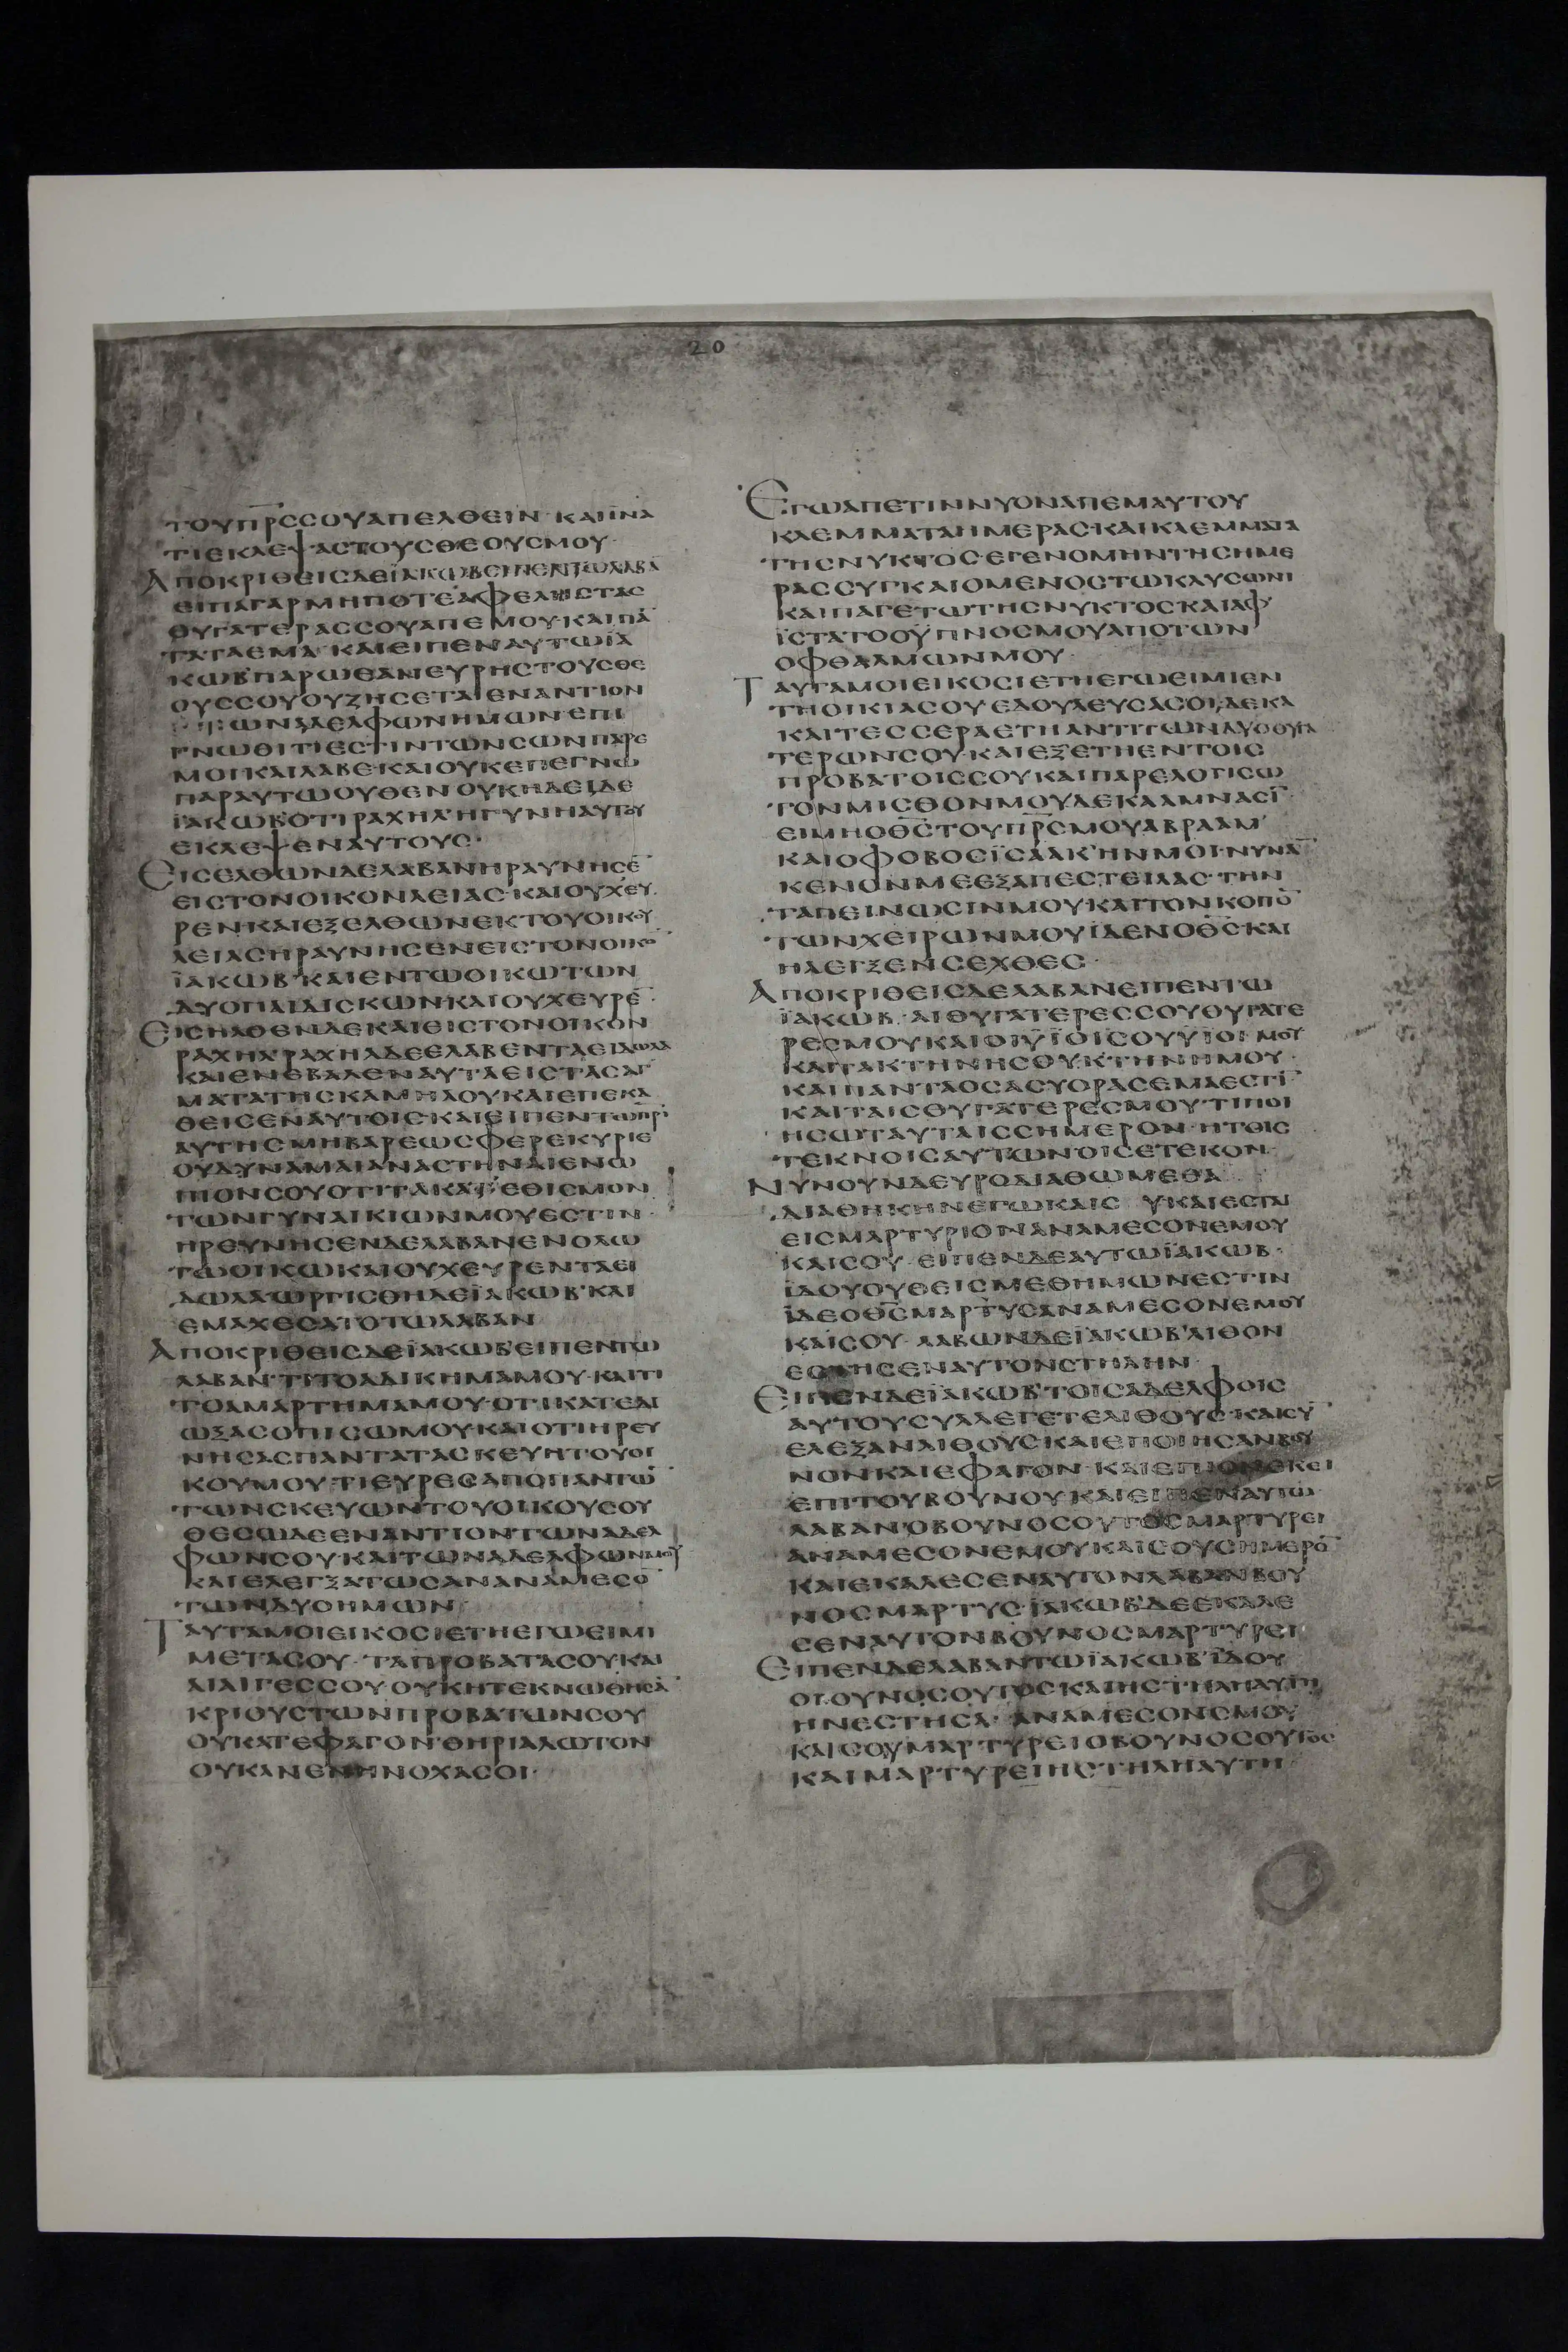 20
ΤΟΥΠΡ̅Σ̅ΣΟΥΑΠΕΛΘΕΙΝ· ΚΑΙΪΝΑ
ΤΙΕΚΛΕΨΑΣΤΟΥΣΘΕΟΥΣΜΟΥ·
ΑΠΟΚΡΙΘΕΙΣΔΕΪΑΚΩΒΕΙΠΕΝΤΩΛΑΒΑ̅
ΕΙΠΑΓΑΡΜΗΠΟΤΕΑΦΕΛΗΣΤΑΣ
ΘΥΓΑΤΕΡΑΣΣΟΥΑΠΕΜΟΥ·ΚΑΙΠΑ̅
ΤΑΤΑΕΜΑ· ΚΑΙΕΙΠΕΝΑΥΤΩΪΑ
ΚΩΒ'ΠΑΡΩΕΑΝΕΥΡΗΣΤΟΥΣΘΕ
ΟΥΣΣΟΥΟΥΖΗΣΕΤΑΙΕΝΑΝΤΙΟΝ
ΤΩΝΑΔΕΛΦΩΝΗΜΩΝ·ΕΠΙ
ΓΝΩΘΙΤΙΕΣΤΙΝΤΩΝΣΩΝΠΑΡΕ
ΜΟΙΚΑΙΛΑΒΕ·ΚΑΙΟΥΚΕΠΕΓΝΩ
ΠΑΡΑΥΤΩΟΥΘΕΝ ΟΥΚΗΔΕΙΔΕ
ΪΑΚΩΒ'ΟΤΙΡΑΧΗΛ'ΗΓΥΝΗΑΥΤΟΥ
ΕΚΛΕΨΕΝΑΥΤΟΥΣ·
ΕΙΣΕΛΘΩΝΔΕΛΑΒΑΝΗΡΑΥΝΗΣΕ̅
ΕΙΣΤΟΝΟΙΚΟΝΛΕΙΑΣ·ΚΑΙΟΥΧ'ΕΥ
ΡΕΝΚΑΙΕΞΕΛΘΩΝΕΚΤΟΥΟΙΚΟΥ
ΛΕΙΑΣΗΡΑΥΝΗΣΕΝΕΙΣΤΟΝΟΙΚΟ̅
ΪΑΚΩΒ'ΚΑΙΕΝΤΩΟΙΚΩΤΩΝ
ΔΥΟΠΑΙΔΙΣΚΩΝ·ΚΑΙΟΥΧΕΥΡΕ̅·
ΕΙΣΗΛΘΕΝΔΕΚΑΙΕΙΣΤΟΝΟΙΚΟΝ
ΡΑΧΗΛ'ΡΑΧΗΛΔΕΕΛΑΒΕΝΤΑΕΙΔΩΛΑ
ΚΑΙΕΝΕΒΑΛΕΝΑΥΤΑΕΙΣΤΑΣΑΓ
ΜΑΤΑΤΗΣΚΑΜΗΛΟΥΚΑΙΕΠΕΚΑ
ΘΕΙΣΕΝΑΥΤΟΙΣ·ΚΑΙΕΙΠΕΝΤΩΠΡ̅Ι̅
ΑΥΤΗΣΜΗΒΑΡΕΩΣΦΕΡΕΚΥΡΙΕ
ΟΥΔΥΝΑΜΑΙΑΝΑΣΤΗΝΑΙΕΝΩ
ΠΙΟΝΣΟΥΟΤΙΤΑΚΑΤ'ΕΘΙΣΜΟΝ
ΤΩΝΓΥΝΑΙΚΙΩΝΜΟΥΕΣΤΙΝ·
ΗΡΕΥΝΗΣΕΝΔΕΛΑΒΑΝΕΝΟΛΩ
ΤΩΟΙΚΩΚΑΙΟΥΧΕΥΡΕΝΤΑΕΙ
ΔΩΛΑΩΡΓΙΣΘΗΔΕΪΑΚΩΒ'ΚΑΙ
ΕΜΑΧΕΣΑΤΟΤΩΛΑΒΑΝ
ΑΠΟΚΡΙΘΕΙΣΔΕΪΑΚΩΒ'ΕΙΠΕΝΤΩ
ΛΑΒΑΝ·ΤΙΤΟΑΔΙΚΗΜΑΜΟΥ·ΚΑΙΤΙ
ΤΟΑΜΑΡΤΗΜΑΜΟΥ·ΟΤΙΚΑΤΕΔΙ
ΩΞΑΣΟΠΙΣΩΜΟΥΚΑΙΟΤΙΗΡΕΥ
ΝΗΣΑΣΠΑΝΤΑΤΑΣΚΕΥΗΤΟΥΟΙ
ΚΟΥΜΟΥ·ΤΙΕΥΡΕΣΑΠΟΠΑΝΤΩ̅
ΤΩΝΣΚΕΥΩΝΤΟΥΟΙΚΟΥΣΟΥ
ΘΕΣΩΔΕΕΝΑΝΤΙΟΝΤΩΝΑΔΕΛ
ΦΩΝΣΟΥ·ΚΑΙΤΩΝΑΔΕΛΦΩΝΜΟΥ
ΚΑΙΕΛΕΓΞΑΤΩΣΑΝΑΝΑΜΕΣΟ̅
ΤΩΝΔΥΟΗΜΩΝ·
ΤΑΥΤΑΜΟΙΕΙΚΟΣΙΕΤΗΕΓΩΕΙΜΙ
ΜΕΤΑΣΟΥ· ΤΑΠΡΟΒΑΤΑΣΟΥΚΑΙ
ΑΙΑΙΓΕΣΣΟΥ·ΟΥΚΗΤΕΚΝΩΘΗΣΑ̅
ΚΡΙΟΥΣΤΩΝΠΡΟΒΑΤΩΝΣΟΥ
ΟΥΚΑΤΕΦΑΓΟΝ·ΘΗΡΙΑΛΩΤΟΝ
ΟΥΚΑΝΕΝΗΝΟΧΑΣΟΙ·
ΕΓΩΑΠΕΤΙΝΝΥΟΝΑΠΕΜΑΥΤΟΥ
ΚΛΕΜΜΑΤΑΗΜΕΡΑΣ·ΚΑΙΚΛΕΜΜΑΤΑ
ΤΗΣΝΥΚΤΟΣ·ΕΓΕΝΟΜΗΝΤΗΣΗΜΕ
ΡΑΣΣΥΓΚΑΙΟΜΕΝΟΣΤΩΚΑΥΣΩΝΙ
ΚΑΙΠΑΓΕΤΩΤΗΣΝΥΚΤΟΣΚΑΙΑΦ'
ΪΣΤΑΤΟΟΫΠΝΟΣΜΟΥΑΠΟΤΩΝ
ΟΦΘΑΛΜΩΝΜΟΥ·
ΤΑΥΤΑΜΟΙΕΙΚΟΣΙΕΤΗΕΓΩΕΙΜΙΕΝ
ΤΗΟΙΚΙΑΣΟΥΕΔΟΥΛΕΥΣΑΣΟΙ·ΔΕΚΑ
ΚΑΙΤΕΣΣΕΡΑΕΤΗΑΝΤΙΤΩΝΔΥΟΘΥΓΑ
ΤΕΡΩΝΣΟΥ·ΚΑΙΕΞΕΤΗΕΝΤΟΙΣ
ΠΡΟΒΑΤΟΙΣΣΟΥΚΑΙΠΑΡΕΛΟΓΙΣΩ
ΤΟΝΜΙΣΘΟΝΜΟΥΔΕΚΑΑΜΝΑΣΙ̅·
ΕΙΜΗΟΘ̅Σ̅ΤΟΥΠΡ̅Σ̅ΜΟΥΑΒΡΑΑΜ'
ΚΑΙΟΦΟΒΟΣΪΣΑΑΚ'ΗΝΜΟΙ·ΝΥΝΑ̅
ΚΕΝΟΝΜΕΕΞΑΠΕΣΤΕΙΛΑΣ·ΤΗΝ
ΤΑΠΕΙΝΩΣΙΝΜΟΥ·ΚΑΙΤΟΝΚΟΠΟ̅
ΤΩΝΧΕΙΡΩΝΜΟΥΪΔΕΝΟΘ̅Σ̅ΚΑΙ
ΗΛΕΓΞΕΝΣΕΧΘΕΣ·
ΑΠΟΚΡΙΘΕΙΣΔΕΛΑΒΑΝΕΙΠΕΝΤΩ
ΪΑΚΩΒ· ΑΙΘΥΓΑΤΕΡΕΣΣΟΥΘΥΓΑΤΕ
ΡΕΣΜΟΥΚΑΙΟΙΫΪΟΙΣΟΥΫΪΟΙΜΟΥ
ΚΑΙΤΑΚΤΗΝΗΣΟΥ·ΚΤΗΝΗΜΟΥ·
ΚΑΙΠΑΝΤΑΟΣΑΣΥΟΡΑΣΕΜΑΕΣΤΙ̅
ΚΑΙΤΑΙΣΘΥΓΑΤΕΡΕΣΜΟΥ·ΤΙΠΟΙ
ΗΣΩΤΑΥΤΑΙΣΣΗΜΕΡΟΝ·ΗΤΟΙΣ
ΤΕΚΝΟΙΣΑΥΤΩΝΟΙΣΕΤΕΚΟΝ·
ΝΥΝΟΥΝΔΕΥΡΟΔΙΑΘΩΜΕΘΑ
ΔΙΑΘΗΚΗΝΕΓΩΚΑΙΣ ΥΚΑΙΕΣΤΑΙ
ΕΙΣΜΑΡΤΥΡΙΟΝΑΝΑΜΕΣΟΝΕΜΟΥ
ΚΑΙΣΟΥ· ΕΙΠΕΝΔΕΑΥΤΩΪΑΚΩΒ·
ΪΔΟΥΟΥΘΕΙΣΜΕΘΗΜΩΝΕΣΤΙΝ
ΪΔΕΟΘ̅Σ̅ΜΑΡΤΥΣΑΝΑΜΕΣΟΝΕΜΟΥ
ΚΑΙΣΟΥ· ΛΑΒΩΝΔΕΪΑΚΩΒ'ΛΙΘΟΝ
ΕΣΤΗΣΕΝΑΥΤΟΝΣΤΗΛΗΝ·
ΕΙΠΕΝΔΕΪΑΚΩΒ'ΤΟΙΣΑΔΕΛΦΟΙΣ
ΑΥΤΟΥΣΥΛΛΕΓΕΤΕΛΙΘΟΥΣ·ΚΑΙΣΥ̅
ΕΛΕΞΑΝΛΙΘΟΥΣΚΑΙΕΠΟΙΗΣΑΝΒΟΥ
ΝΟΝΚΑΙΕΦΑΓΟΝ· ΚΑΙΕΠΙΟΝΕΚΕΙ
ΕΠΙΤΟΥΒΟΥΝΟΥΚΑΙΕΙΠΕΝΑΥΤΩ
ΛΑΒΑΝ'ΟΒΟΥΝΟΣΟΥΤΟΣΜΑΡΤΥΡΕΙ
ΑΝΑΜΕΣΟΝΕΜΟΥΚΑΙΣΟΥΣΗΜΕΡΟ̅
ΚΑΙΕΚΑΛΕΣΕΝΑΥΤΟΝΛΑΒΑΝΒΟΥ
ΝΟΣΜΑΡΤΥΣ·ΪΑΚΩΒ'ΔΕΕΚΑΛΕ
ΣΕΝΑΥΤΟΝΒΟΥΝΟΣΜΑΡΤΥΡΕΙ
ΕΙΠΕΝΔΕΛΑΒΑΝΤΩΪΑΚΩΒ'ΪΔΟΥ
ΟΒΟΥΝΟΣΟΥΤΟΣΚΑΙΗΣΤΗΛΗΑΥΤΗ
ΗΝΕΣΤΗΣΑ· ΑΝΑΜΕΣΟΝΕΜΟΥ
ΚΑΙΣΟΥΜΑΡΤΥΡΕΙΟΒΟΥΝΟΣΟΥΤΟΣ
ΚΑΙΜΑΡΤΥΡΕΙΗΣΤΗΛΗΑΥΤΗ